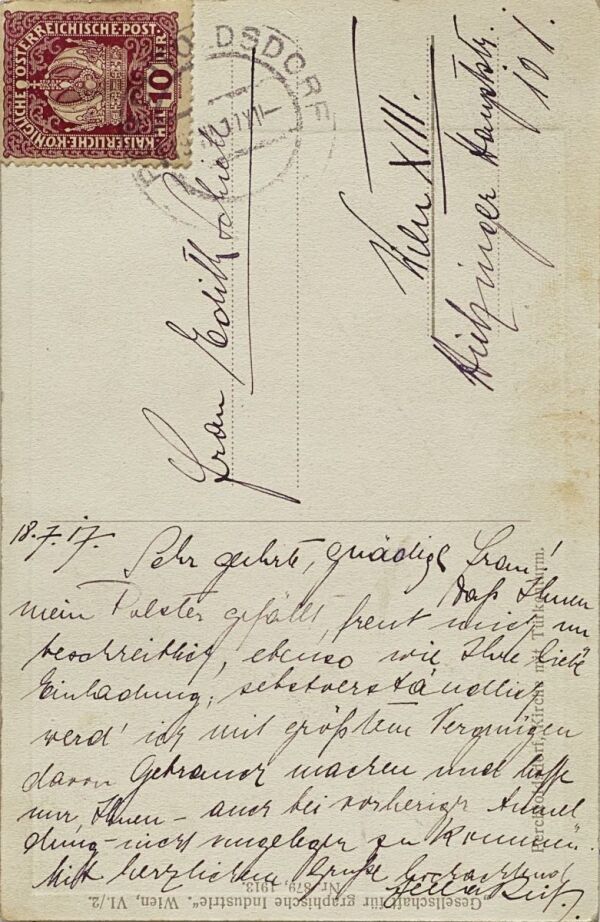 KAISERLICHE KÖNIGLICHE ÖSTERREICHISCHE POST
HELLER 10 HELLER
DSDORF
Frau Edith Schiele
Wien XIII.
Hietzinger Hauptstr.
101.
18.7.17.
Sehr geehrte, gnädige Frau!
daß Ihnen
mein Polster gefällt, freut mich un
beschreiblich, ebenso wie Ihre liebe
Einladung; selbstverständlich
werd' ich mit größtem Vergnügen
davon Gebrauch machen und hoffe
nur, Ihnen - auch bei vorheriger Anmel
dung - nicht ungelegen zu kommen.
Mit herzlichem Gruße hochachtend
Perchtoldsdorf, Kirche mit Türkenturm.
"Gesellschaft für graphische Industrie". Wien, VI./2.
Nr. 879, 1913